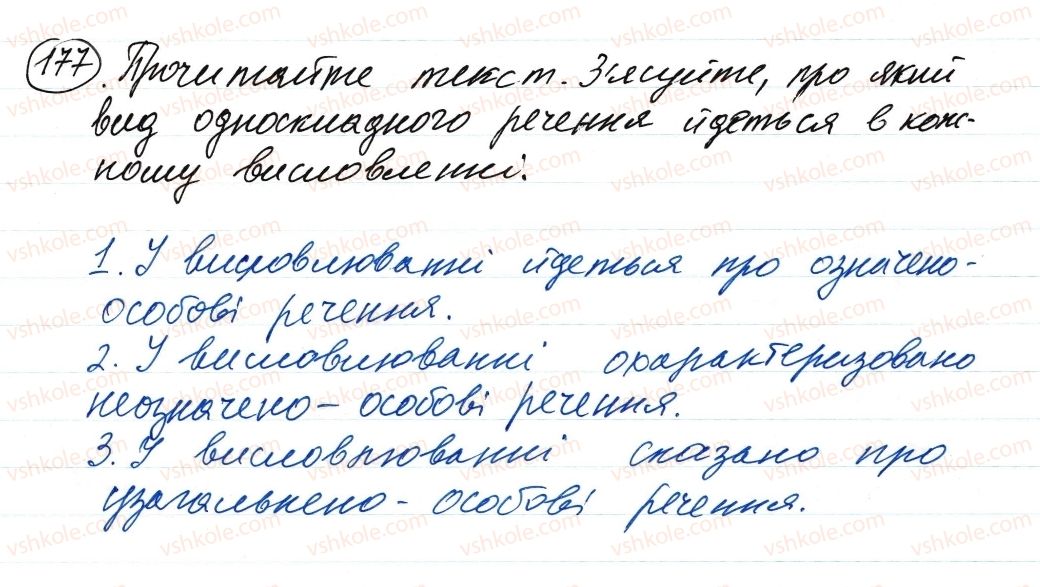 177. Прочитайте текст. З'ясуйте, про який
вид односкладного речення йдеться в кож-
ному висловленні.
1. У висловлюванні йдеться про означено-
особові речення.
2. У висловлюванні охарактеризовано
неозначено-особові речення.
3. У висловлюванні сказано про
узагальнено-особові речення.